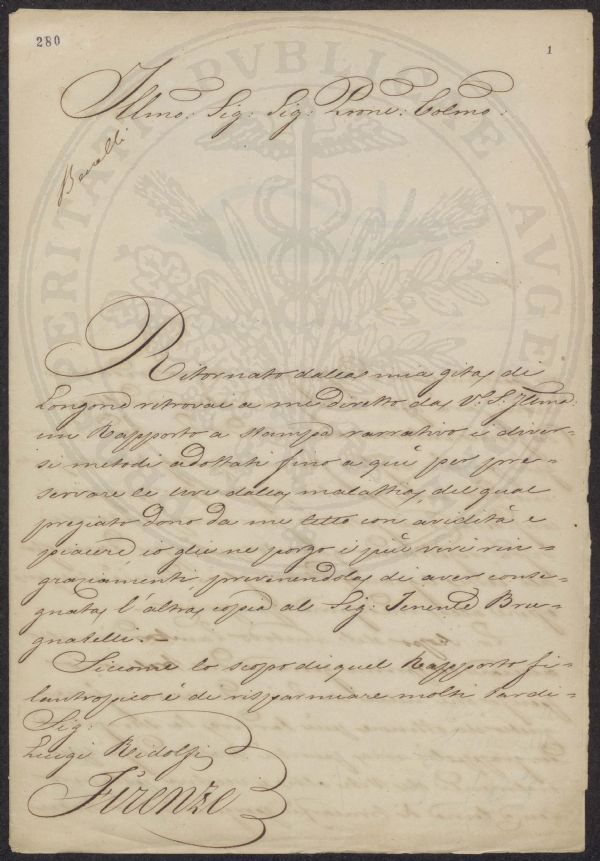 280
1
Illmo: Sig: Sig: Prone: Colmo:
Ritornato dalla mia gita di
Longone ritrovai a me diretto da V.S. Illma:
un Rapporto a stampa narrativo i diver-
si metodi adottati fino a quì per pre-
servare le uve dalla malattia, del qual
pregiato dono da me letto con avidità e
piacere io gliene porgo i più vivi rin-
graziamenti, prevenendola di aver conse-
gnata l'altra copia al Sig: Tenente Bru-
gnatelli.-
Siccome lo scopo di quel Rapporto fi-
lantropico è di risparmiare molti tardi-
Sig:
Luigi Ridolfi
Firenze